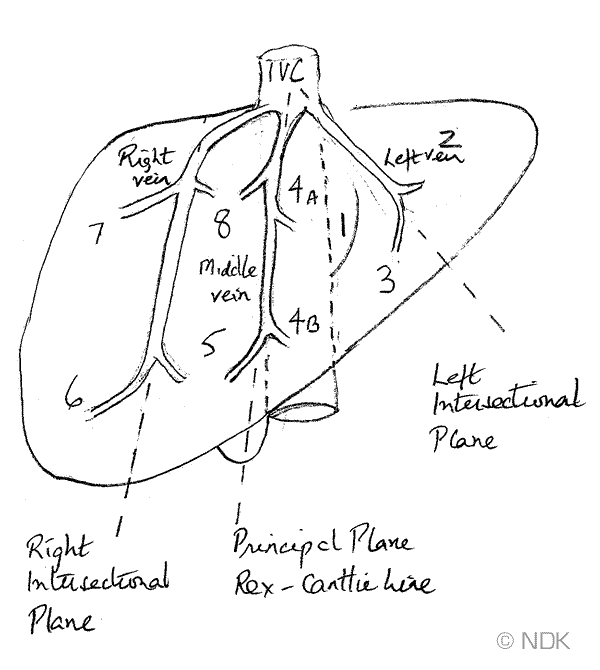 IVC
Right
vein
Left vein
2
7
8
4A
1
3
Middle
vein
5
4B
6
Left
Intersectional
Plane
Right
Intersectional
Plane
Principal Plane
Rex - Canttie Line
© NDK